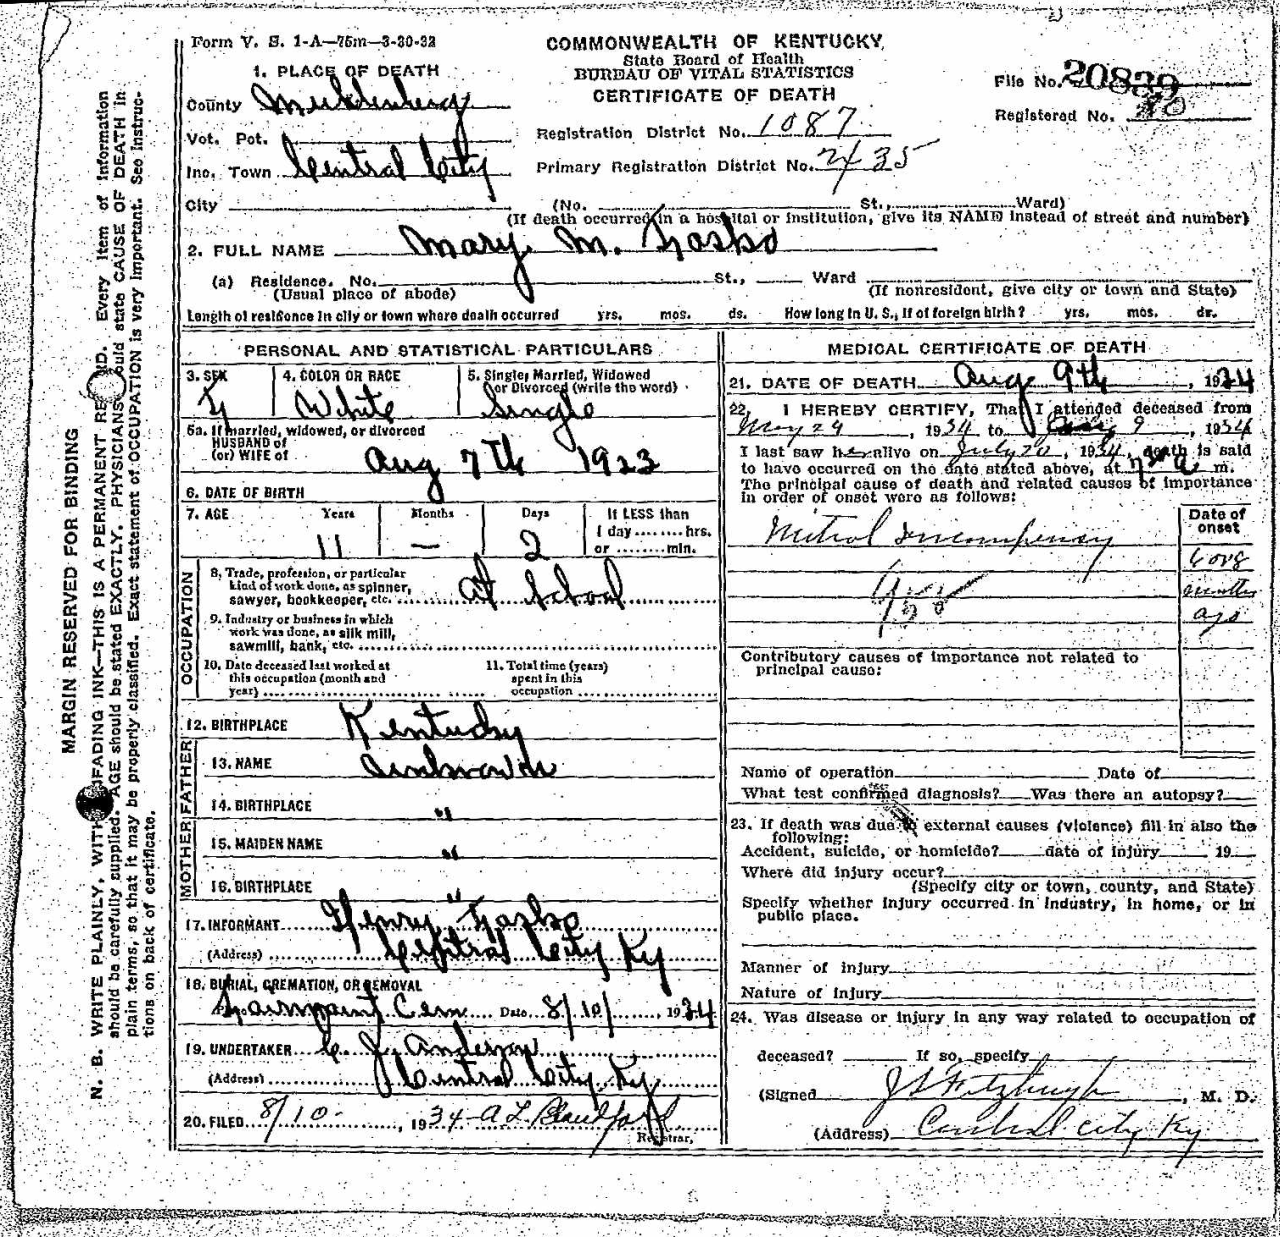 Form V. S. 1-A—75m—3-30-32
COMMONWEALTH OF KENTUCKY
State Board of Health
BUREAU OF VITAL STATISTICS
CERTIFICATE OF DEATH
File No. 20839
Registered No.
1. PLACE OF DEATH
County Muhlenberg
Vot. Pct.
Inc. Town Central City
City
Registration District No. 1087
Primary Registration District No. 2435
(No. St., Ward)
(If death occurred in a hospital or institution, give its NAME instead of street and number)
2. FULL NAME Mary M.
(a) Residence. No. St., Ward
(Usual place of abode) (If nonresident, give city or town and State)
Length of residence in city or town where death occurred yrs. mos. ds. How long in U. S., if of foreign birth? yrs. mos. ds.
PERSONAL AND STATISTICAL PARTICULARS
3. SEX 4. COLOR OR RACE 5. Single, Married, Widowed
or Divorced (write the word)
F White Single
5a. If married, widowed, or divorced
HUSBAND of
(or) WIFE of
Aug 7th 1923
6. DATE OF BIRTH
7. AGE Years Months Days If LESS than
1 day ........ hrs.
or ........ min.
11 — 2
OCCUPATION
8. Trade, profession, or particular
kind of work done, as spinner,
sawyer, bookkeeper, etc. At School
9. Industry or business in which
work was done, as silk mill,
sawmill, bank, etc.
10. Date deceased last worked at
this occupation (month and
year)
11. Total time (years)
spent in this
occupation
12. BIRTHPLACE Kentucky
FATHER
13. NAME Unknown
14. BIRTHPLACE "
MOTHER
15. MAIDEN NAME "
16. BIRTHPLACE "
17. INFORMANT Henry
(Address) Central City Ky
18. BURIAL, CREMATION, OR REMOVAL
Fairmount Cem Date 8/10/ 1934
19. UNDERTAKER C. J. Anderson
(Address) Central City Ky
20. FILED 8/10- , 1934 A L Blandford
Registrar.
MEDICAL CERTIFICATE OF DEATH
21. DATE OF DEATH Aug 9th , 1934
22. I HEREBY CERTIFY, That I attended deceased from
May 29 , 1934 to Aug 9 , 1934
I last saw her alive on July 20 , 1934, death is said
to have occurred on the date stated above, at m.
The principal cause of death and related causes of importance
in order of onset were as follows:
Date of
onset
Mitral
months
ago
Contributory causes of importance not related to
principal cause:
Name of operation Date of
What test confirmed diagnosis? Was there an autopsy?
23. If death was due to external causes (violence) fill in also the
following:
Accident, suicide, or homicide? date of injury 19
Where did injury occur?
(Specify city or town, county, and State)
Specify whether injury occurred in industry, in home, or in
public place.
Manner of injury
Nature of injury
24. Was disease or injury in any way related to occupation of
deceased? If so, specify
(Signed J L Fitzhugh , M. D.
(Address) Central City Ky
MARGIN RESERVED FOR BINDING
N. B. WRITE PLAINLY, WITH UNFADING INK—THIS IS A PERMANENT RECORD. Every item of information
should be carefully supplied. AGE should be stated EXACTLY. PHYSICIANS should state CAUSE OF DEATH in
plain terms, so that it may be properly classified. Exact statement of OCCUPATION is very important. See instruc-
tions on back of certificate.